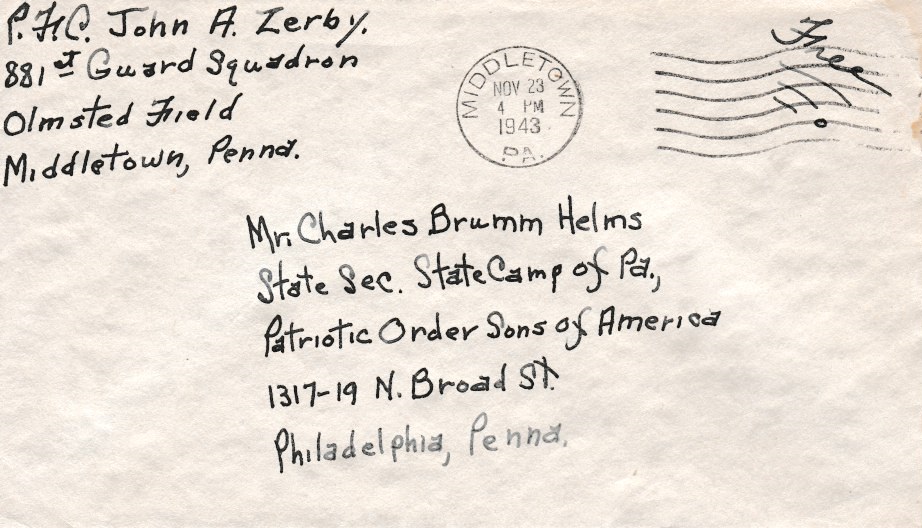 P.F.C. John A. Zerby.
881st Guard Squadron
Olmsted Field
Middletown, Penna.
MIDDLETOWN
NOV 23
4 PM
1943
PA.
Free
Mr. Charles Brumm Helms
State Sec. State Camp of Pa.,
Patriotic Order Sons of America
1317-19 N. Broad St.
Philadelphia, Penna.